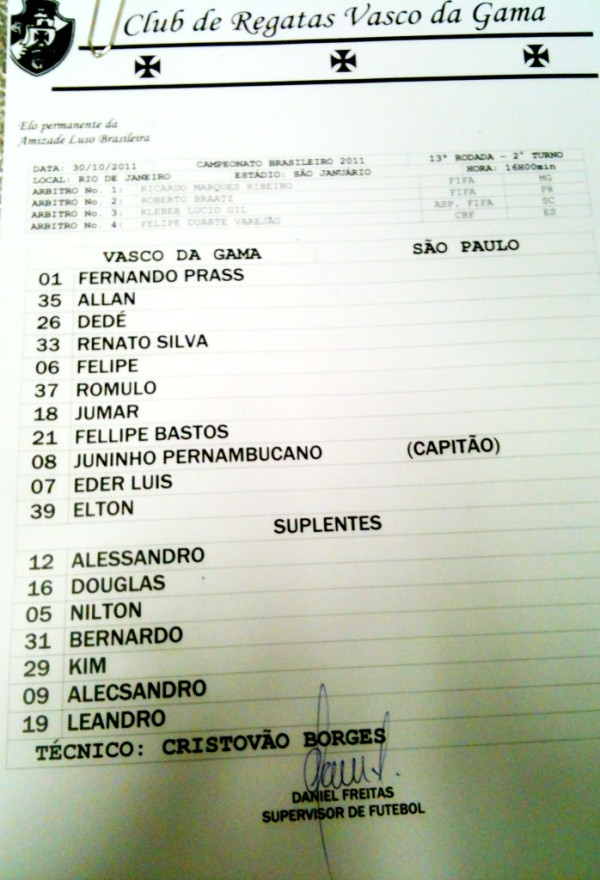 Club de Regatas Vasco da Gama
Elo permanente da
Amizade Luso Brasileira
DATA: 30/10/2011 CAMPEONATO BRASILEIRO 2011 13ª RODADA - 2º TURNO
LOCAL: RIO DE JANEIRO ESTÁDIO: SÃO JANUÁRIO HORA: 16H00min
ARBITRO No. 1: RICARDO MARQUES RIBEIRO FIFA MG
ARBITRO No. 2: ROBERTO BRAATZ FIFA PR
ARBITRO No. 3: KLEBER LUCIO GIL ASP. FIFA SC
ARBITRO No. 4: FELIPE DUARTE VAREJÃO CBF ES
VASCO DA GAMA SÃO PAULO
01 FERNANDO PRASS
35 ALLAN
26 DEDÉ
33 RENATO SILVA
06 FELIPE
37 ROMULO
18 JUMAR
21 FELLIPE BASTOS
08 JUNINHO PERNAMBUCANO (CAPITÃO)
07 EDER LUIS
39 ELTON
SUPLENTES
12 ALESSANDRO
16 DOUGLAS
05 NILTON
31 BERNARDO
29 KIM
09 ALECSANDRO
19 LEANDRO
TÉCNICO: CRISTOVÃO BORGES
DANIEL FREITAS
SUPERVISOR DE FUTEBOL